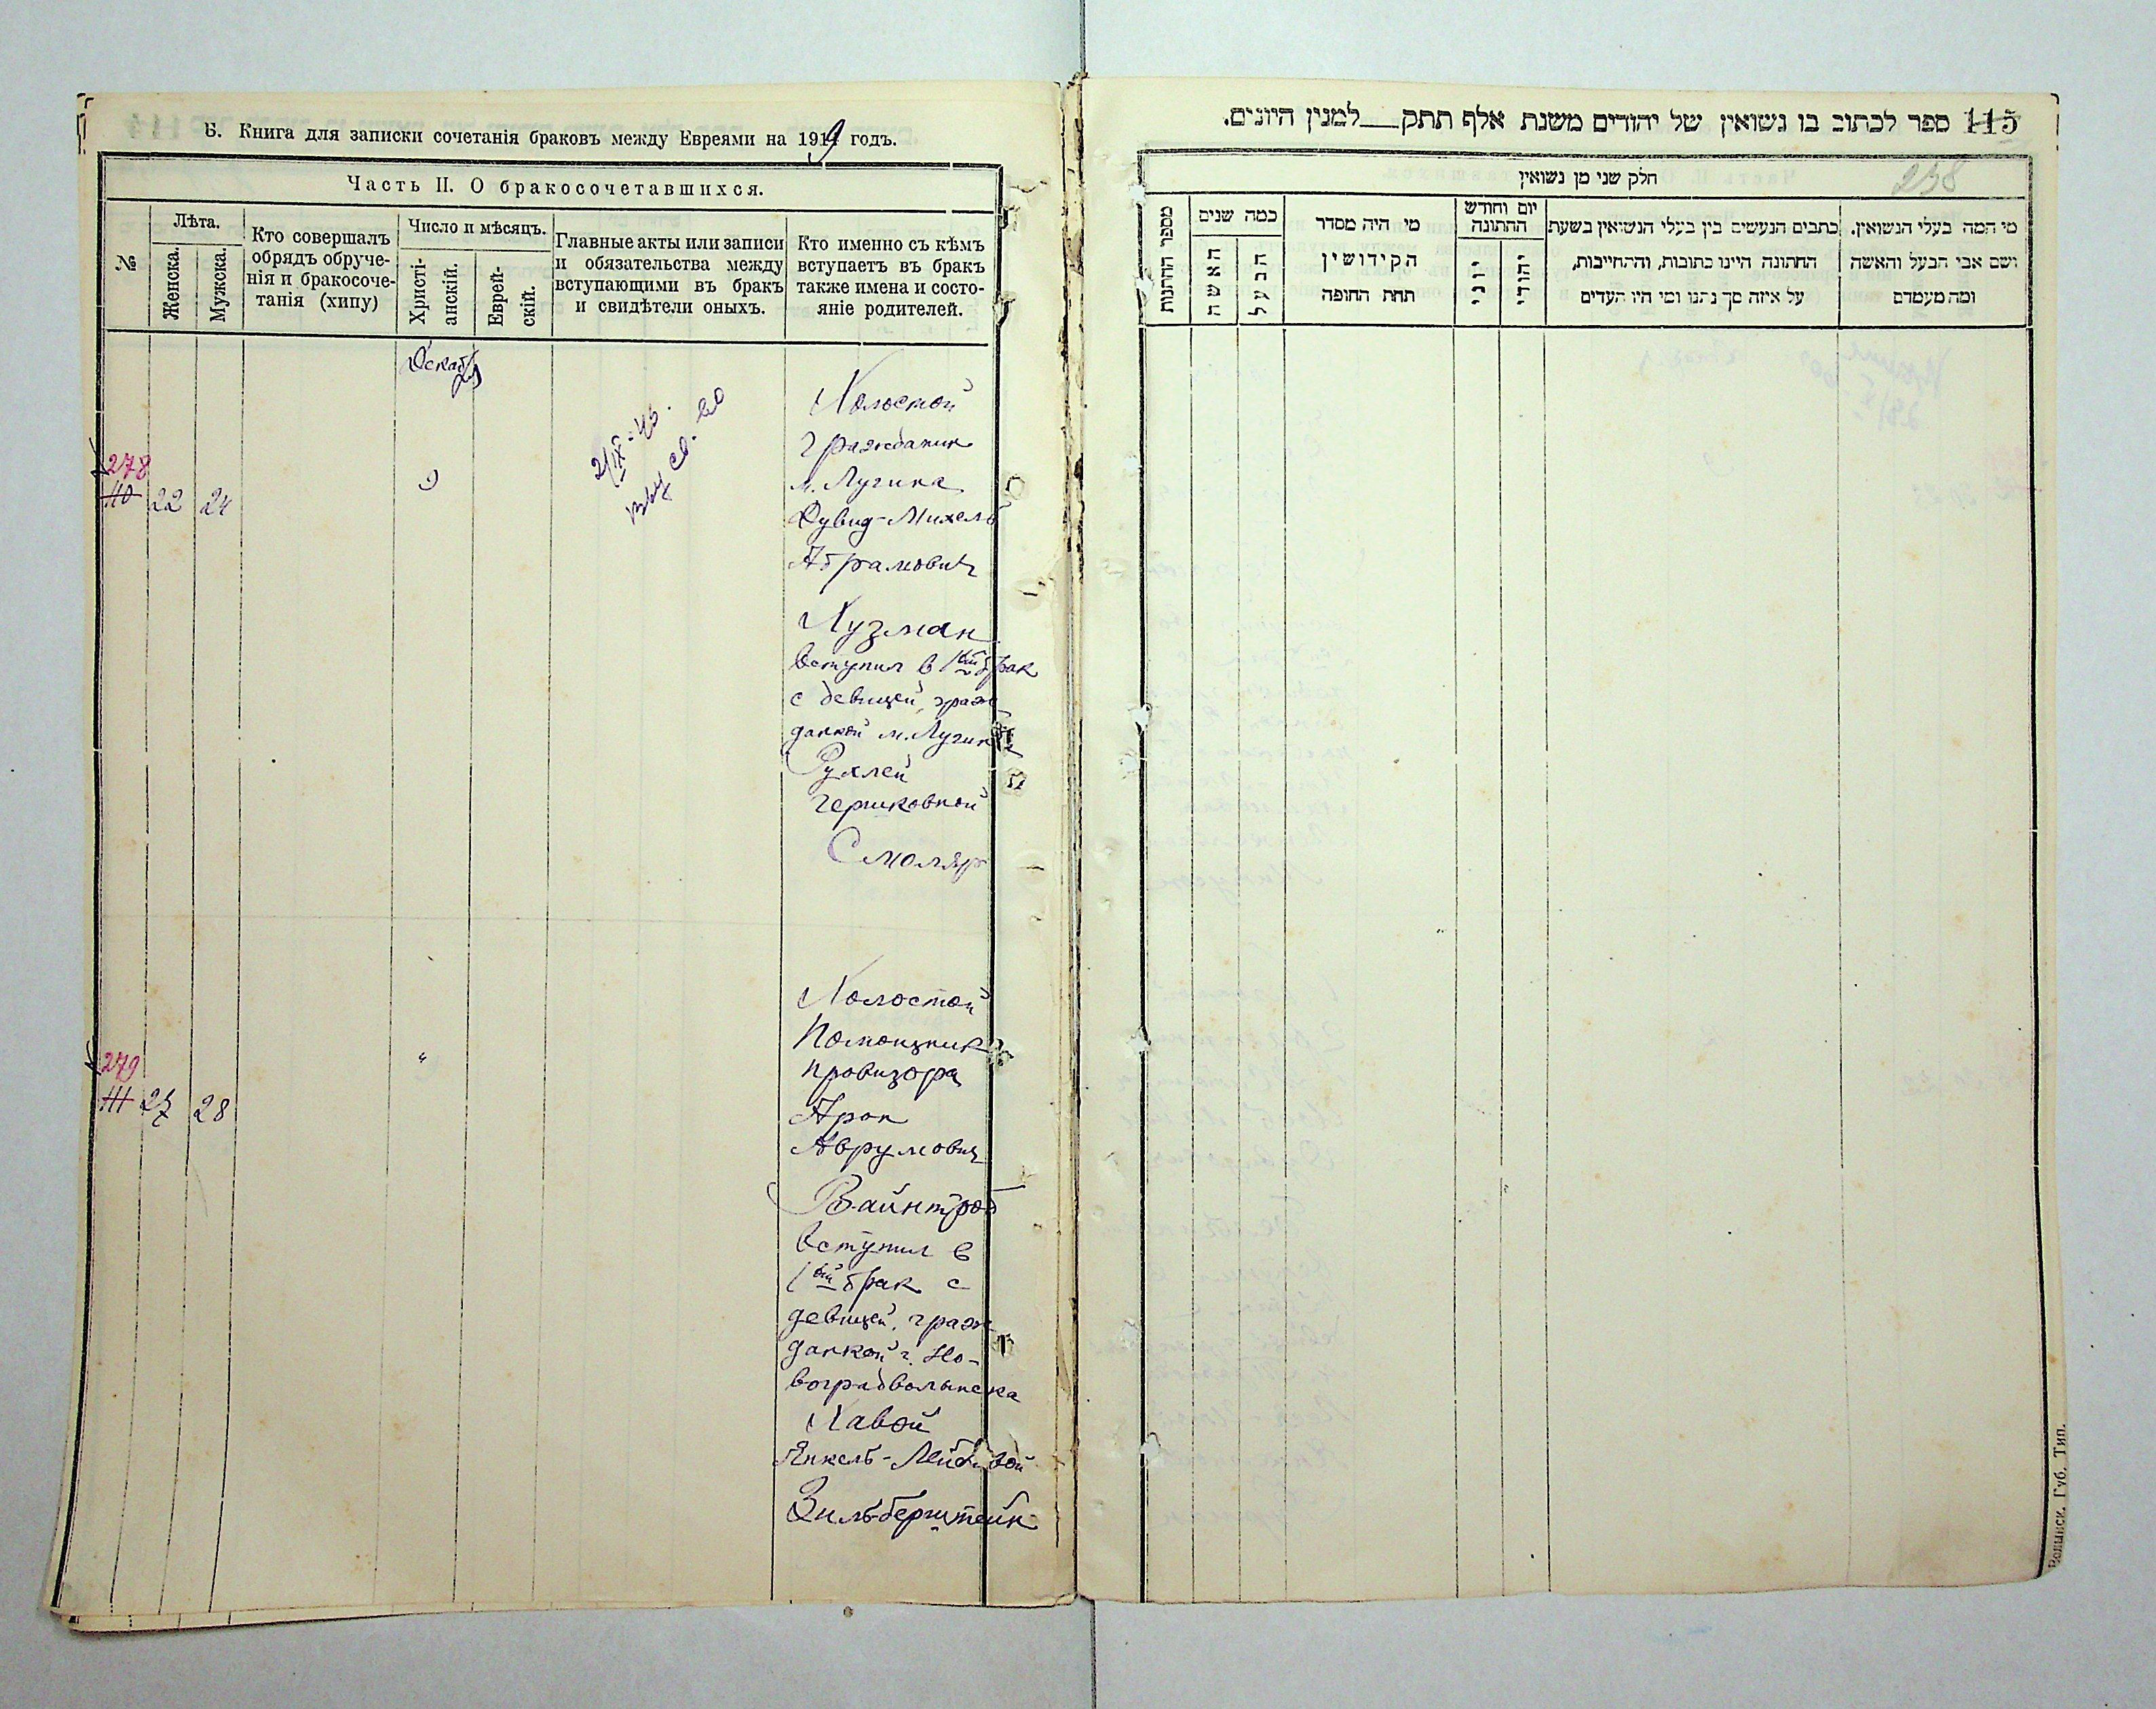 Б. Книга для записки сочетанія браковъ между Евреями на 1919 годъ.
Часть II. О бракосочетавшихся.
№
Лѣта.
Женска.
Мужска.
Кто совершалъ
обрядъ обруче-
нія и бракосоче-
танія (хипу)
Число и мѣсяцъ.
Христі-
анскій.
Еврей-
скій.
Главные акты или записи
и обязательства между
вступающими въ бракъ
и свидѣтели оныхъ.
Кто именно съ кѣмъ
вступаетъ въ бракъ
также имена и состо-
яніе родителей.
278
110
22
24
9
2/IX-46.
Холостой
гражданин
м. Лугина
Дувид-Михель
Абрамович
Лузман
вступил в 1ый брак
с девицей, граж
данкой м. Лугин
Рухлей
Гершковной
Смоляр
279
111
27
28
"
Холостой
Помощник
провизора
Арон
Аврумович
Вайнтроб
вступил в
1ый брак с
девицей, граж
данкой г. Но-
воградволынска
Хавой
Янкель-Лейбовой
Зильберштейн
115 ספר לכתוב בו נשואין של יהודים משנת אלף תתק___למנין היונים.
258
חלק שני מן נשואין
מספר החתונות
כמה שנים
האשה
הבעל
מי היה מסדר
הקידושין
תחת החופה
יום וחודש
החתונה
יוני
יהודי
כתבים הנעשים בין בעלי הנשואין בשעת
החתונה היינו כתובות, והתחייבות,
על איזה סך נתנו ומי היו העדים
מי המה בעלי הנשואין.
ושם אבי הבעל והאשה
ומה מעמדם
Волынск. Губ. Тип.